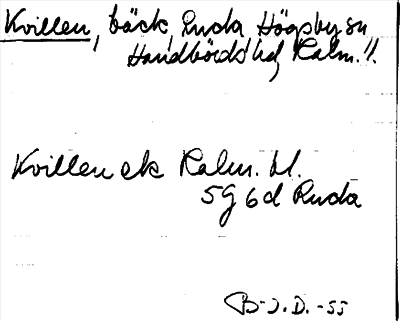 Kvillen, bäck, Ruda, Högsby sn
Handbörds hd, Kalm. l.
Kvillen ek Kalm. bl.
5G 6d Ruda
B-J.D.-55